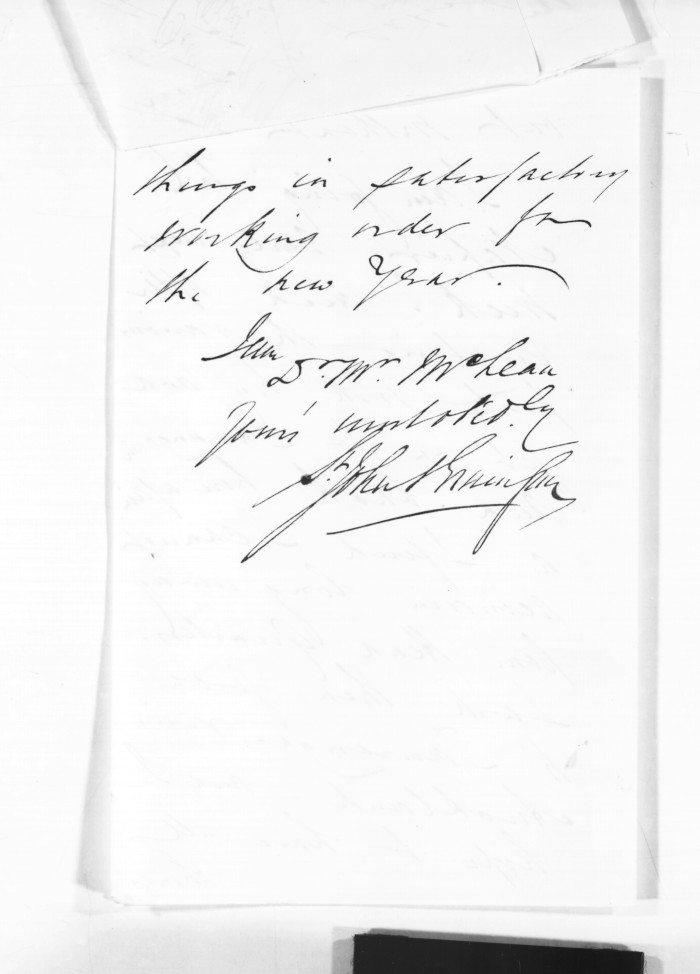 things in satisfactory
working order for
the new Year.
I am
Dr. Mr. McLean
Yours
St John Branigan